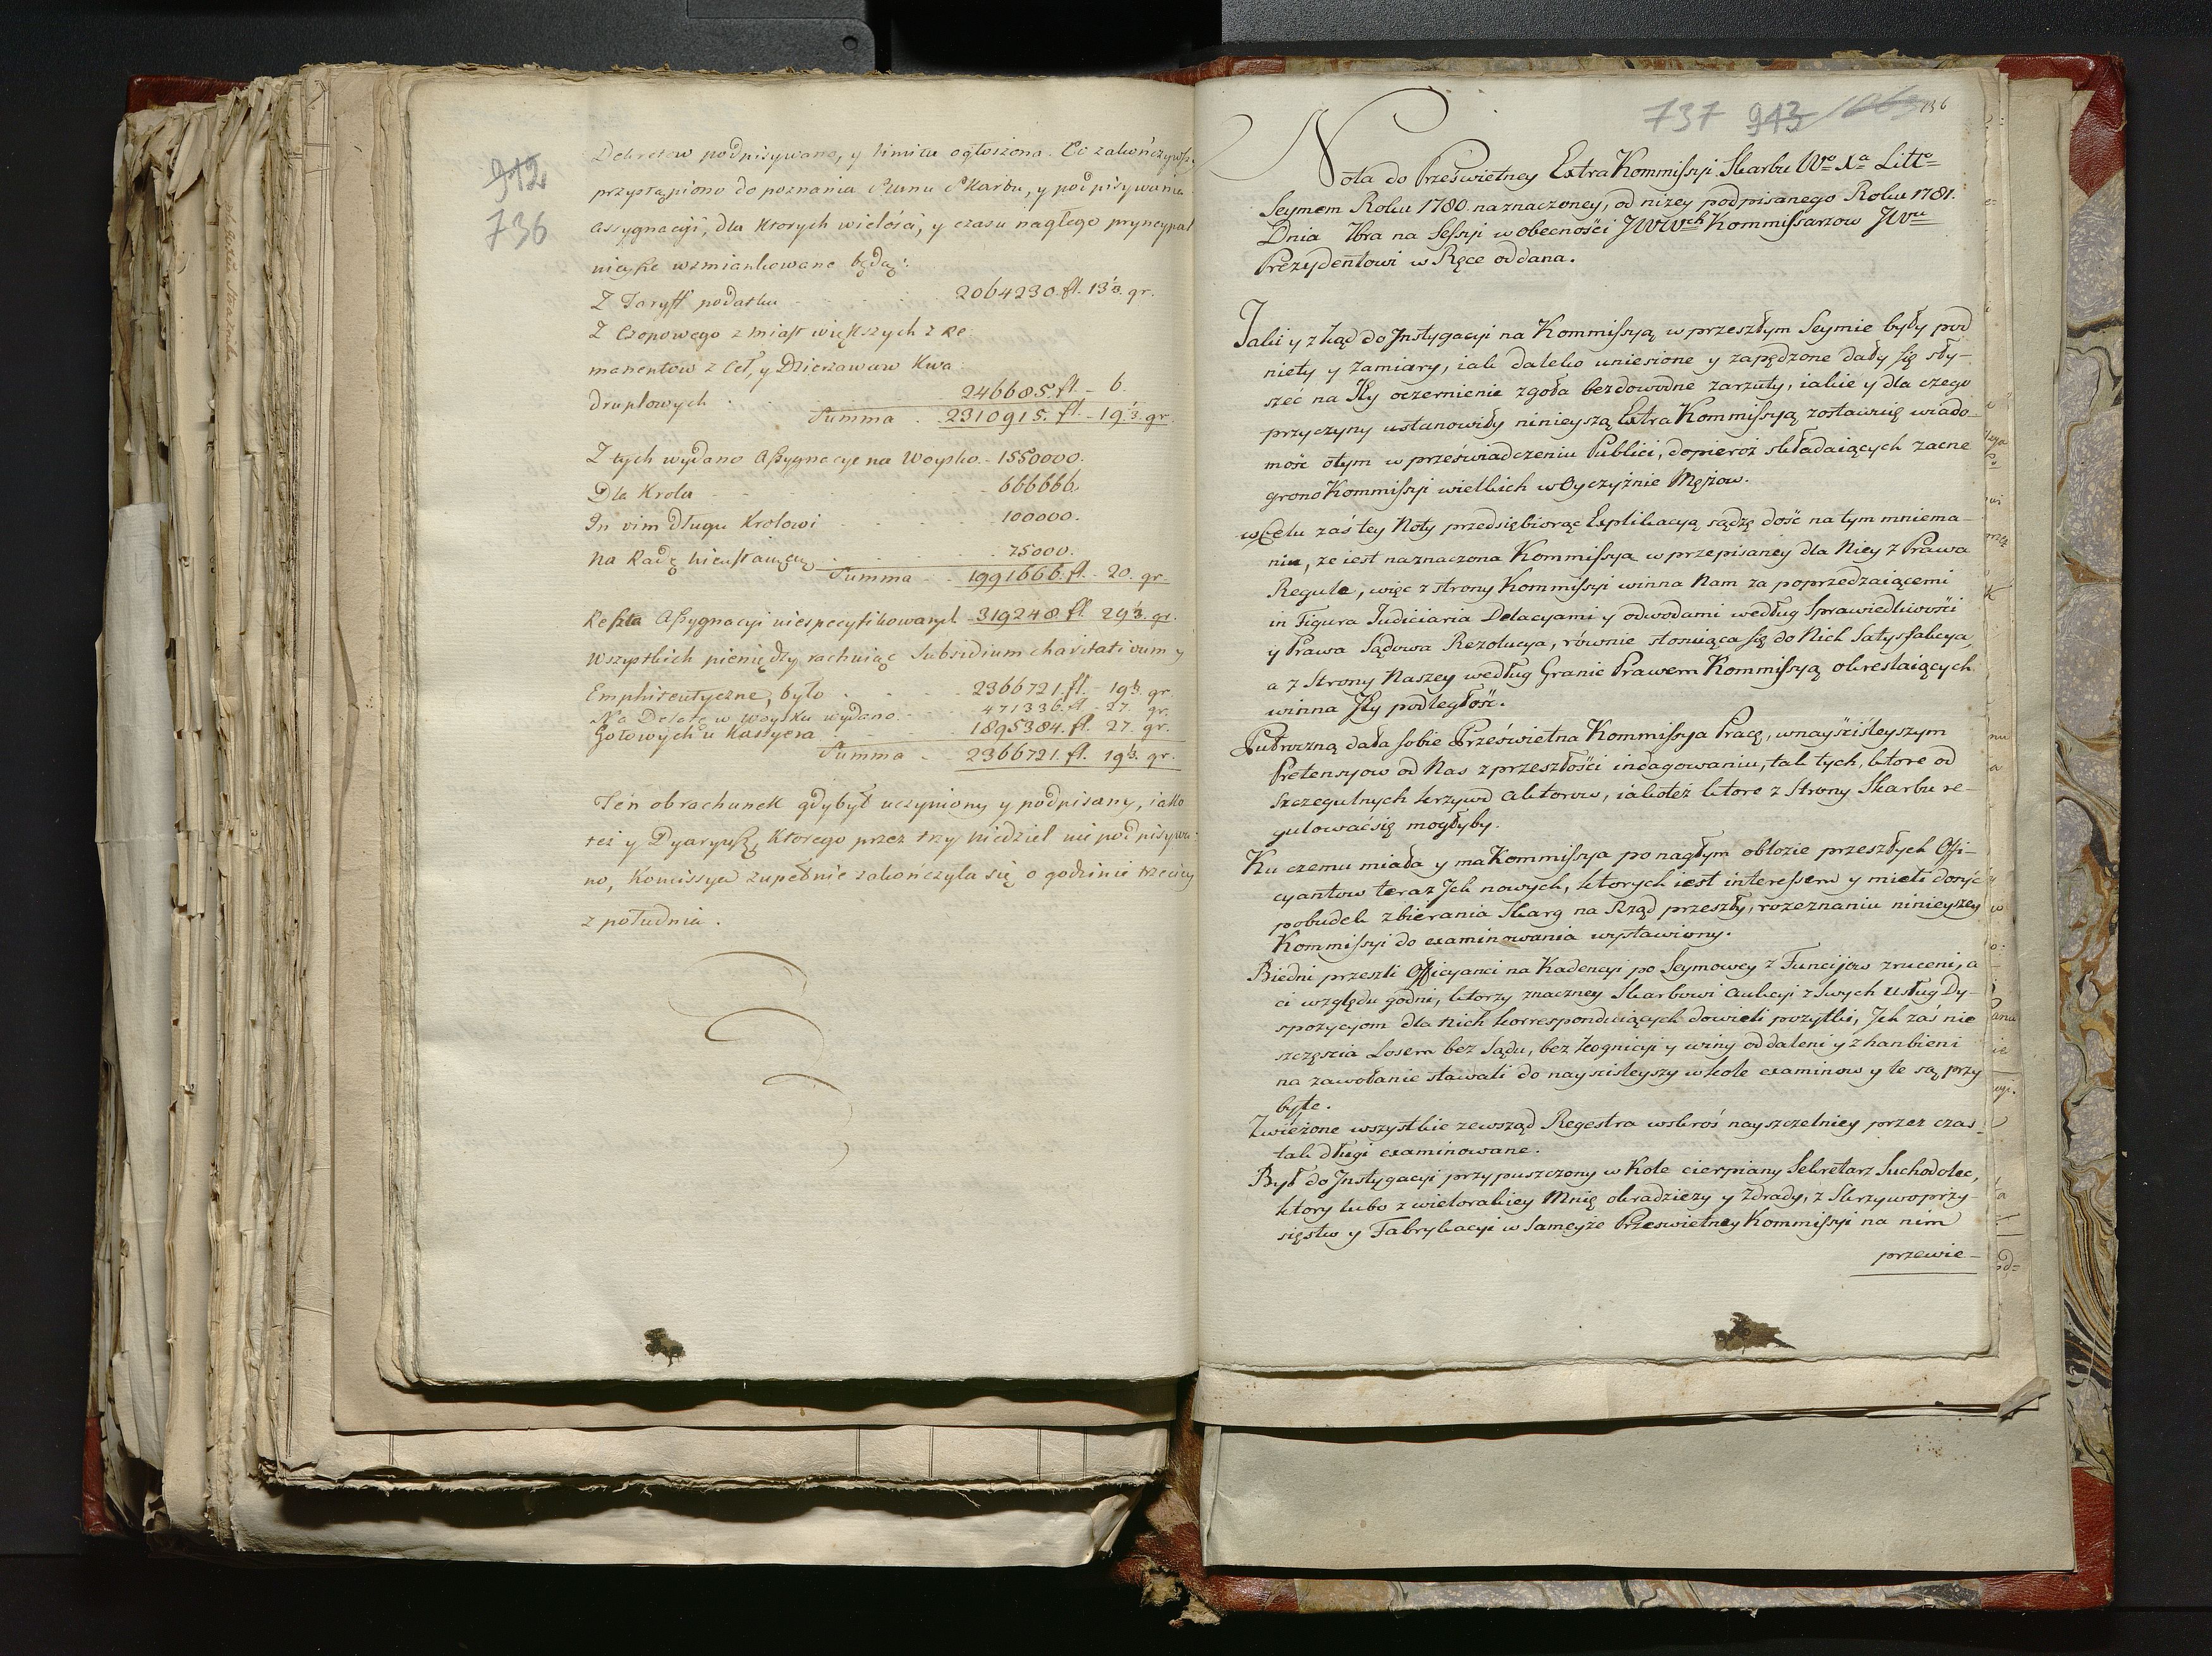 912
736
Dekretow podpisywano, y limita ogłoszona. Co zakończywszy
przystąpiono do poznania Stanu Skarbu, y podpisywania
Assygnacyi, dla ktorych wielości, y czasu nagłego pryncypal
nieysze wzmiankowane będą:
Z Taryff podatku 2064230. fl. 13⅓. gr.
Z Czopowego z miast większych z Re
manentow z Ceł, y Dzierzawuw Kwa
druplowych 246685. fl. - 6.
Summa 2310915. fl. - 19⅓. gr.
Z tych wydano Assygnacye na Woysko - 1550000.
Dla Krola - 666666.
In vim długu Krolowi 100000.
Na Radę nieustaiącą 75000.
Summa 1991666. fl. - 20. gr.
Reszta Assygnacyi niespecyfikowanych 319248. fl. 29⅓. gr.
Wszystkich pieniędzy rachuiąc Subsidium charitativum y
Emphiteutyczne, było 2366721. fl. - 19⅓. gr.
Na Delatę w Woysku wydano 471336. fl. - 27. gr.
Gotowych u Kassyera 1895384. fl. 27. gr.
Summa 2366721. fl. 19⅓. gr.
Ten obrachunek gdy był uczyniony y podpisany, iako
też y Dyaryusz, ktorego przez trzy niedziel nie podpisywa:
no, Komissya zupełnie zakończyła się o godzinie trzeciey
z południa.
737 943 736
Nota do Prześwietney Extra Kommissyi Skarbu Wo Xa Litto
Seymem Roku 1780. naznaczoney, od niżey podpisanego Roku 1781.
Dnia 7bra na Sessyi w obecności JWWch Kommissarzow JWu
Prezydentowi w Ręce oddana.
Jaki y zkąd do Instygacyi na Kommissyą w przeszłym Seymie były pod
niety y zamiary, iak daleko uniesione y zapędzone dały się sły-
szeć na Jey oczernienie zgoła bezdowodne zarzuty, iakie y dla czego
przyczyny ustanowiły ninieyszą Extra Kommissyą zostawuię wiado
mość otym w przeświadczeniu Publici, dopieroż składaiących zacne
grono Kommissyi wielkich w Oyczyźnie Mężow.
w Celu zaś tey Noty przedsiębiorąc Explikacyą sądzę dość na tym mniema-
niu, że iest naznaczona Kommissya w przepisaney dla Niey z Prawa
Regule, więc z strony Kommissyi winna Nam za poprzedzaiącemi
in Figura Judiciaria Delacyami y odwodami według Sprawiedliwości
y Prawa Sądowa Rezolucya, równie stosuiąca się do Nich Satysfakcya,
a z Strony Naszey według Granic Prawem Kommissyą okreslaiących
winna Jey podległość.
Putroczną dała sobie Prześwietna Kommissya Pracę, w nayściśleyszym
Pretensyow od Nas z przeszłości indagowaniu, tak tych, ktore od
szczegulnych krzywd Aktorow, iakoteż ktore z Strony Skarbu re-
gulować się mogłyby.
Ku czemu miała y ma Kommissya po nagłym obłozie przeszłych Offi-
cyantow teraz Ich nowych, ktorych iest interessem y mieli dosyć
pobudek zbierania Skarg na Rząd przeszły, rozeznaniu ninieyszey
Kommissyi do examinowania wystawiony.
Biedni przeszli Officyanci na Kadencyi po Seymowey z Funcijow zruceni, a
ci względu godni, ktorzy znaczney Skarbowi Aukcyi z swych usług Dy-
spozycyom dla nich korrespondujących dowiedli pożytki, Jch zaś nie
szczęscia Losem bez Sądu, bez kognicyi y winy oddaleni y zhanbieni
na zawołanie stawali do nayscisleyszy wkole examinow y te są przy
byłe.
Zwieżone wszystkie zewsząd Regestra wskroś nayszczelniey przez czas
tak długi examinowane.
Był do Instygacyi przypuszczony w Kole cierpiany Sekretarz Suchodolec,
ktory lubo z wielorakiey Mnię okradzieży y Zdrady, z Skrzywoprzy-
sięstw y Fabrykacyi w Sameyże Prześwietney Kommissyi na nim
przewie-